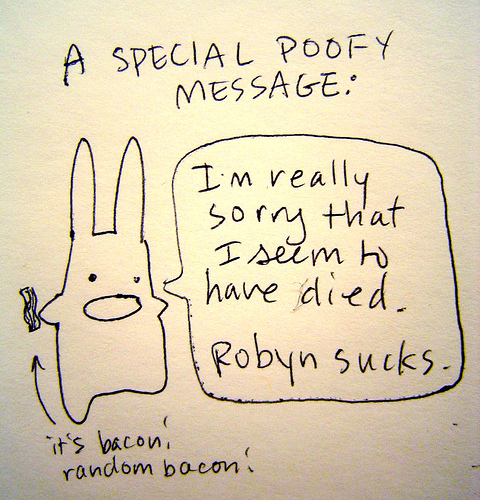 A SPECIAL POOFY
MESSAGE:
I'm really
sorry that
I seem to
have died.
Robyn sucks.
it's bacon!
random bacon!